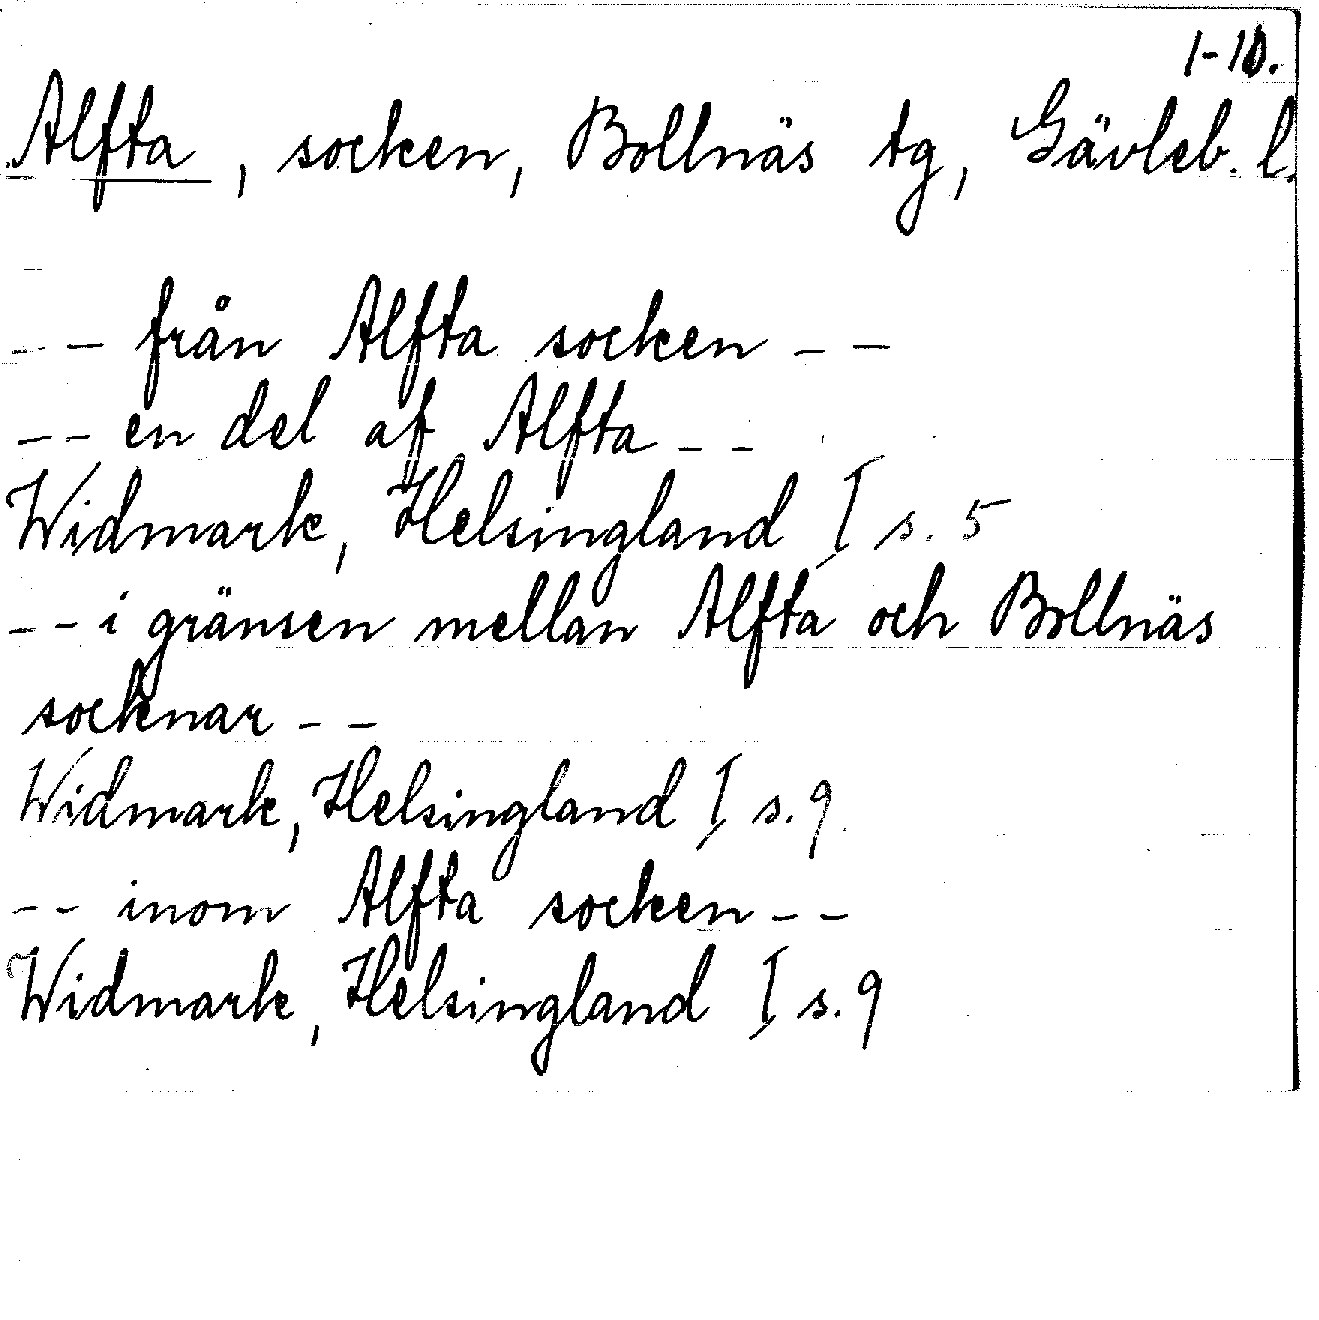 1-10.
Alfta, socken, Bollnäs tg, Gävleb. l.
-- från Alfta socken --
-- en del af Alfta --
Widmark, Helsingland I s. 5
-- i gränsen mellan Alfta och Bollnäs
socknar --
Widmark, Helsingland I s. 9
-- inom Alfta socken --
Widmark, Helsingland I s. 9